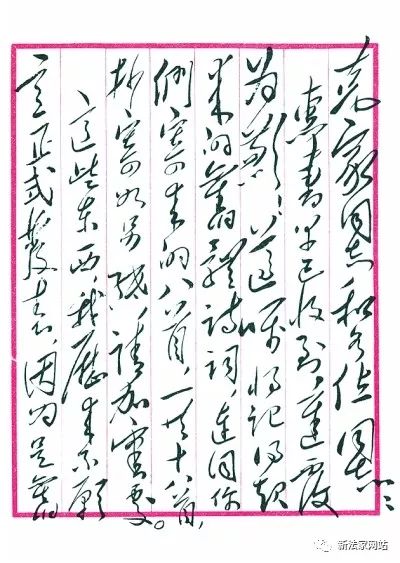 克家同志和各位同志：
惠书早已收到，遲覆
为歉！遵嘱将记得起
来的舊體诗词，连同你
们寄来的八首，一共十八首，
抄寄如另纸，请加審处。
这些东西，我歷来不愿
意正式發表，因为是舊
新法家网站